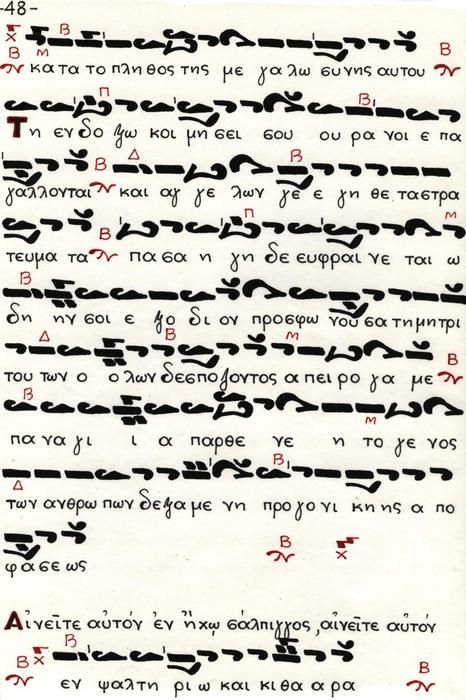 -48-
κα τα το πλη θος της με γα λω συ νης αυτου
Τη εν δο ξω κοι μη σει σου ου ρα νοι ε πα
γαλλονται και αγ γε λων γε ε γη θε τα στρα
τευμα τα πα σα η γη δε ευφραι νε ται ω
δη ην σοι ε ξο δι ον προσφω νου σα τη μητρι
του των ο ο λων δεσποζοντος α πει ρο γα με
πα να γι ι α παρθε νε η το γε νος
των ανθρω πων δεξα με νη προ γο νι κη ης α πο
φα σε ως
Αἰνεῖτε αὐτόν ἐν ἤχῳ σάλπιγγος, αἰνεῖτε αὐτόν
εν ψαλτη ρι ω και κι θα α ρα